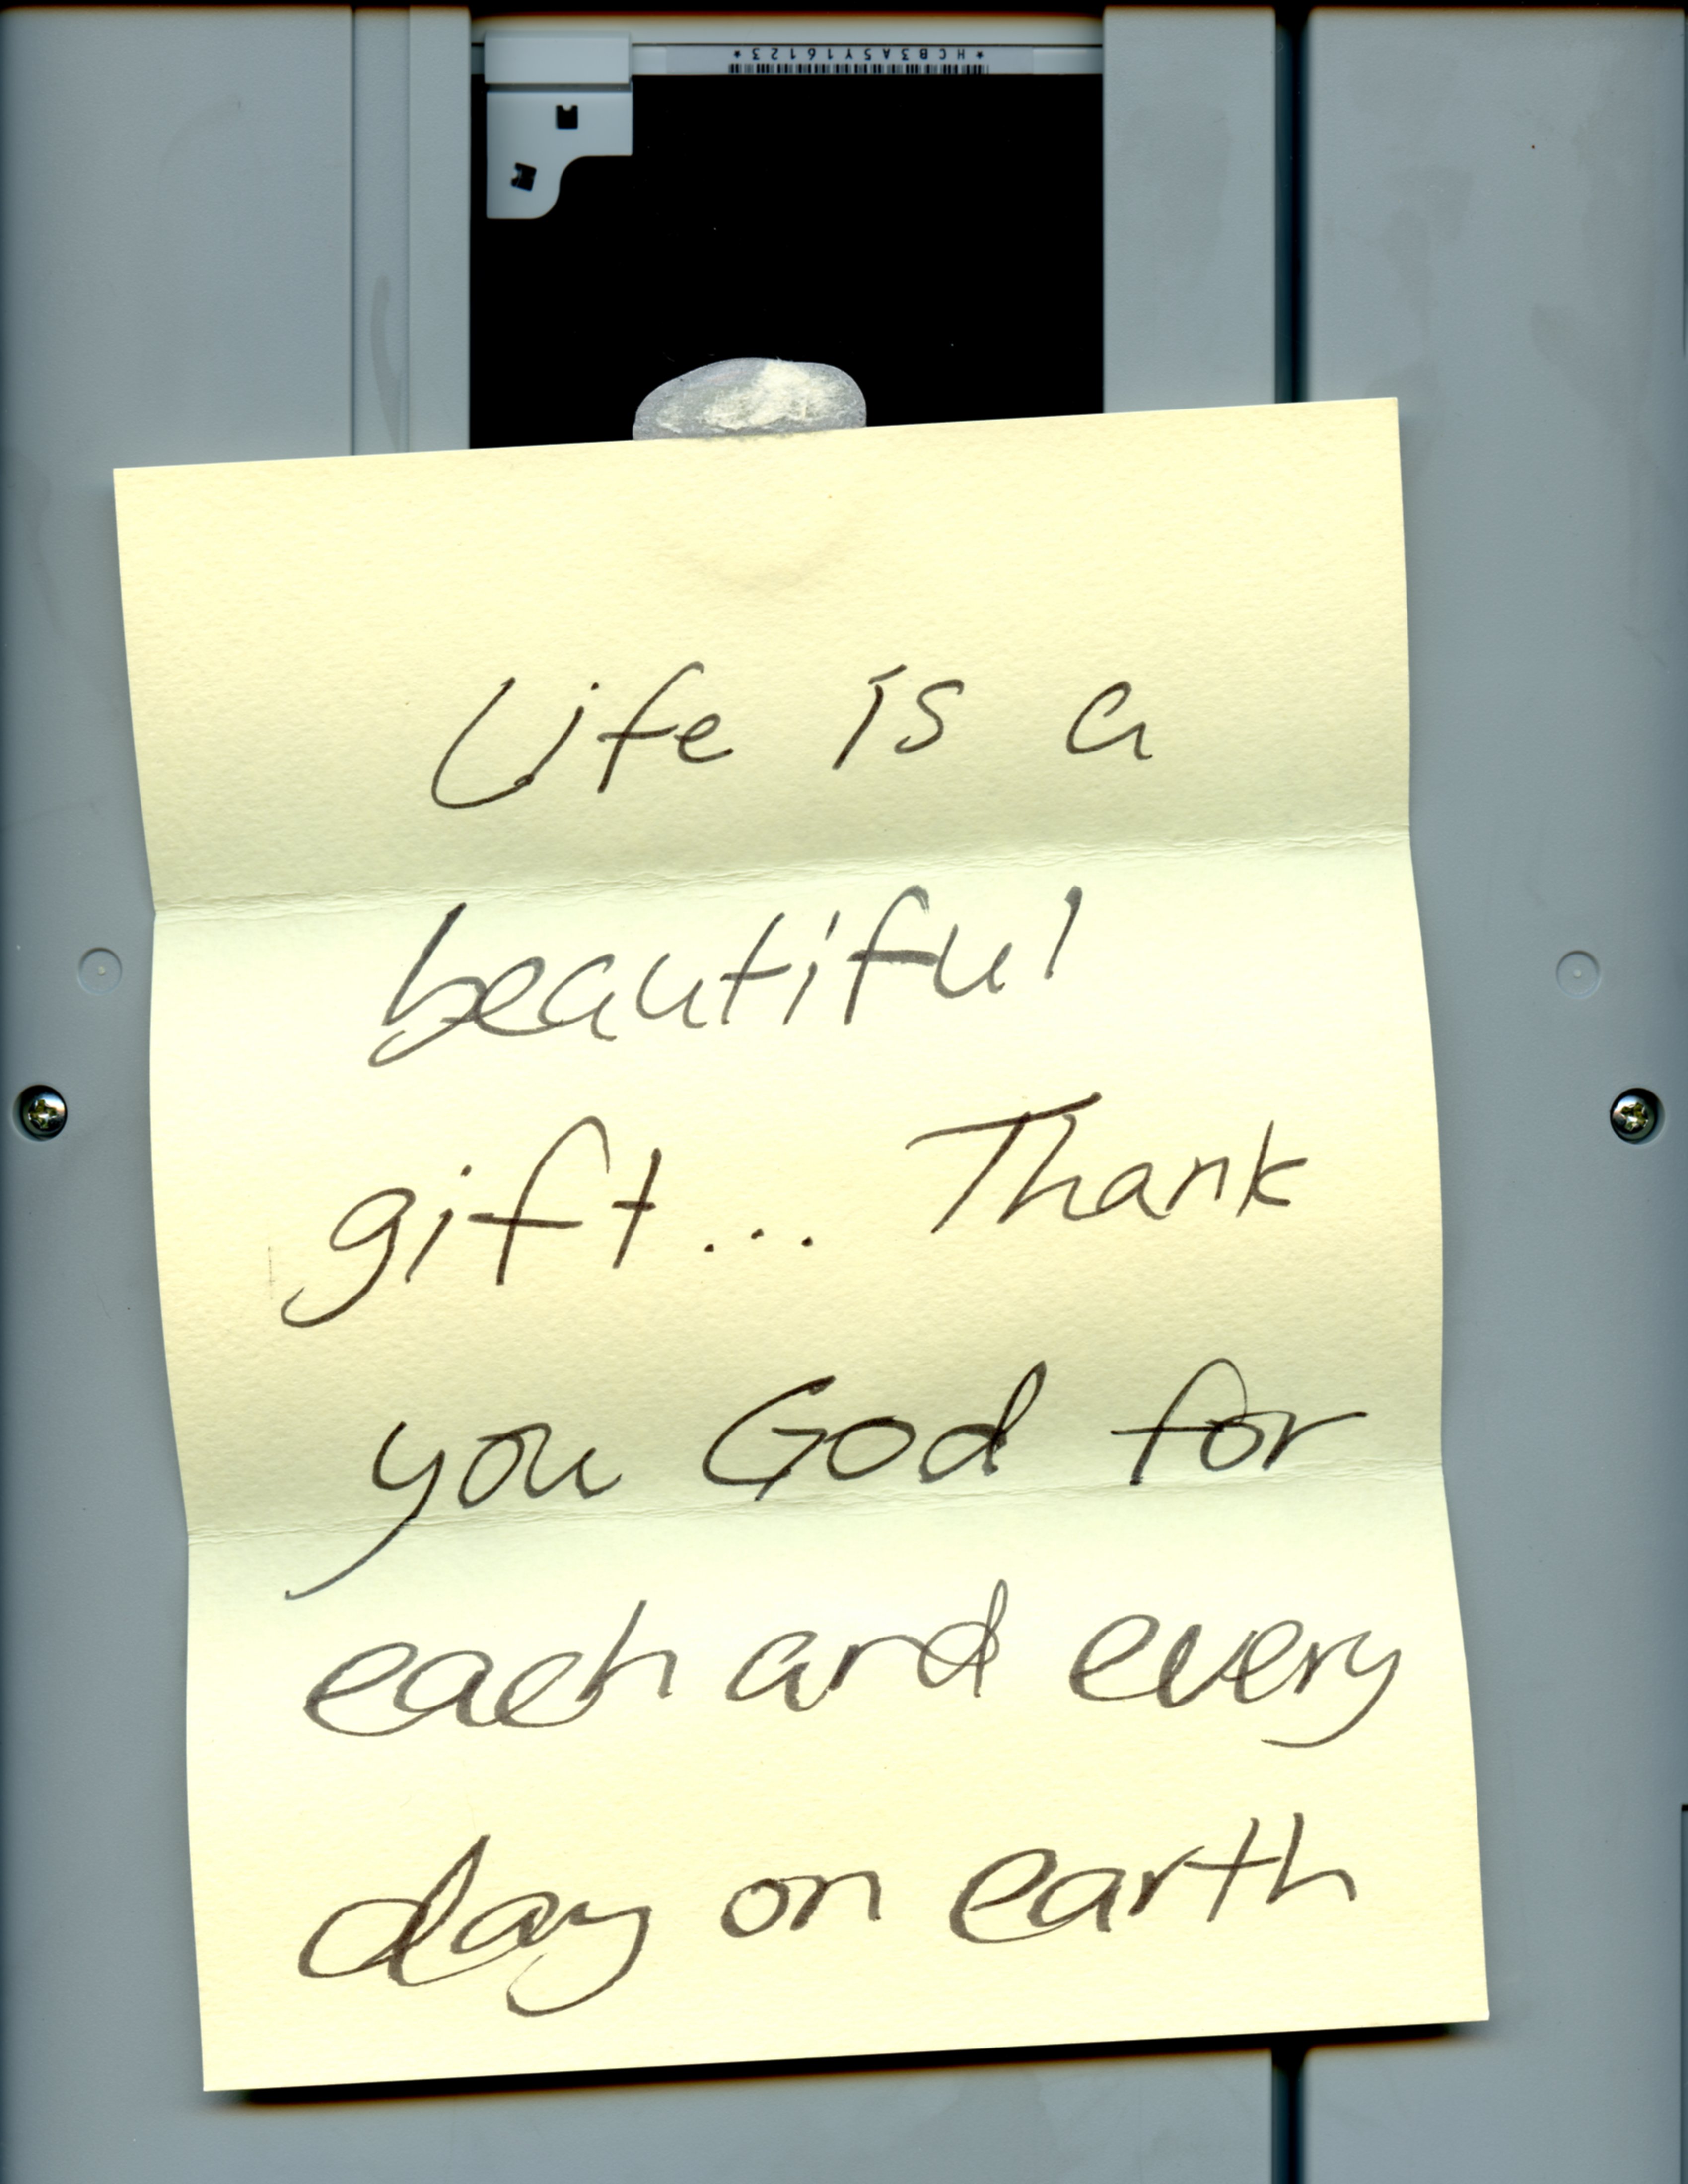 *HCB3A5Y16123*
Life is a
beautiful
gift... Thank
you God for
each and every
day on earth